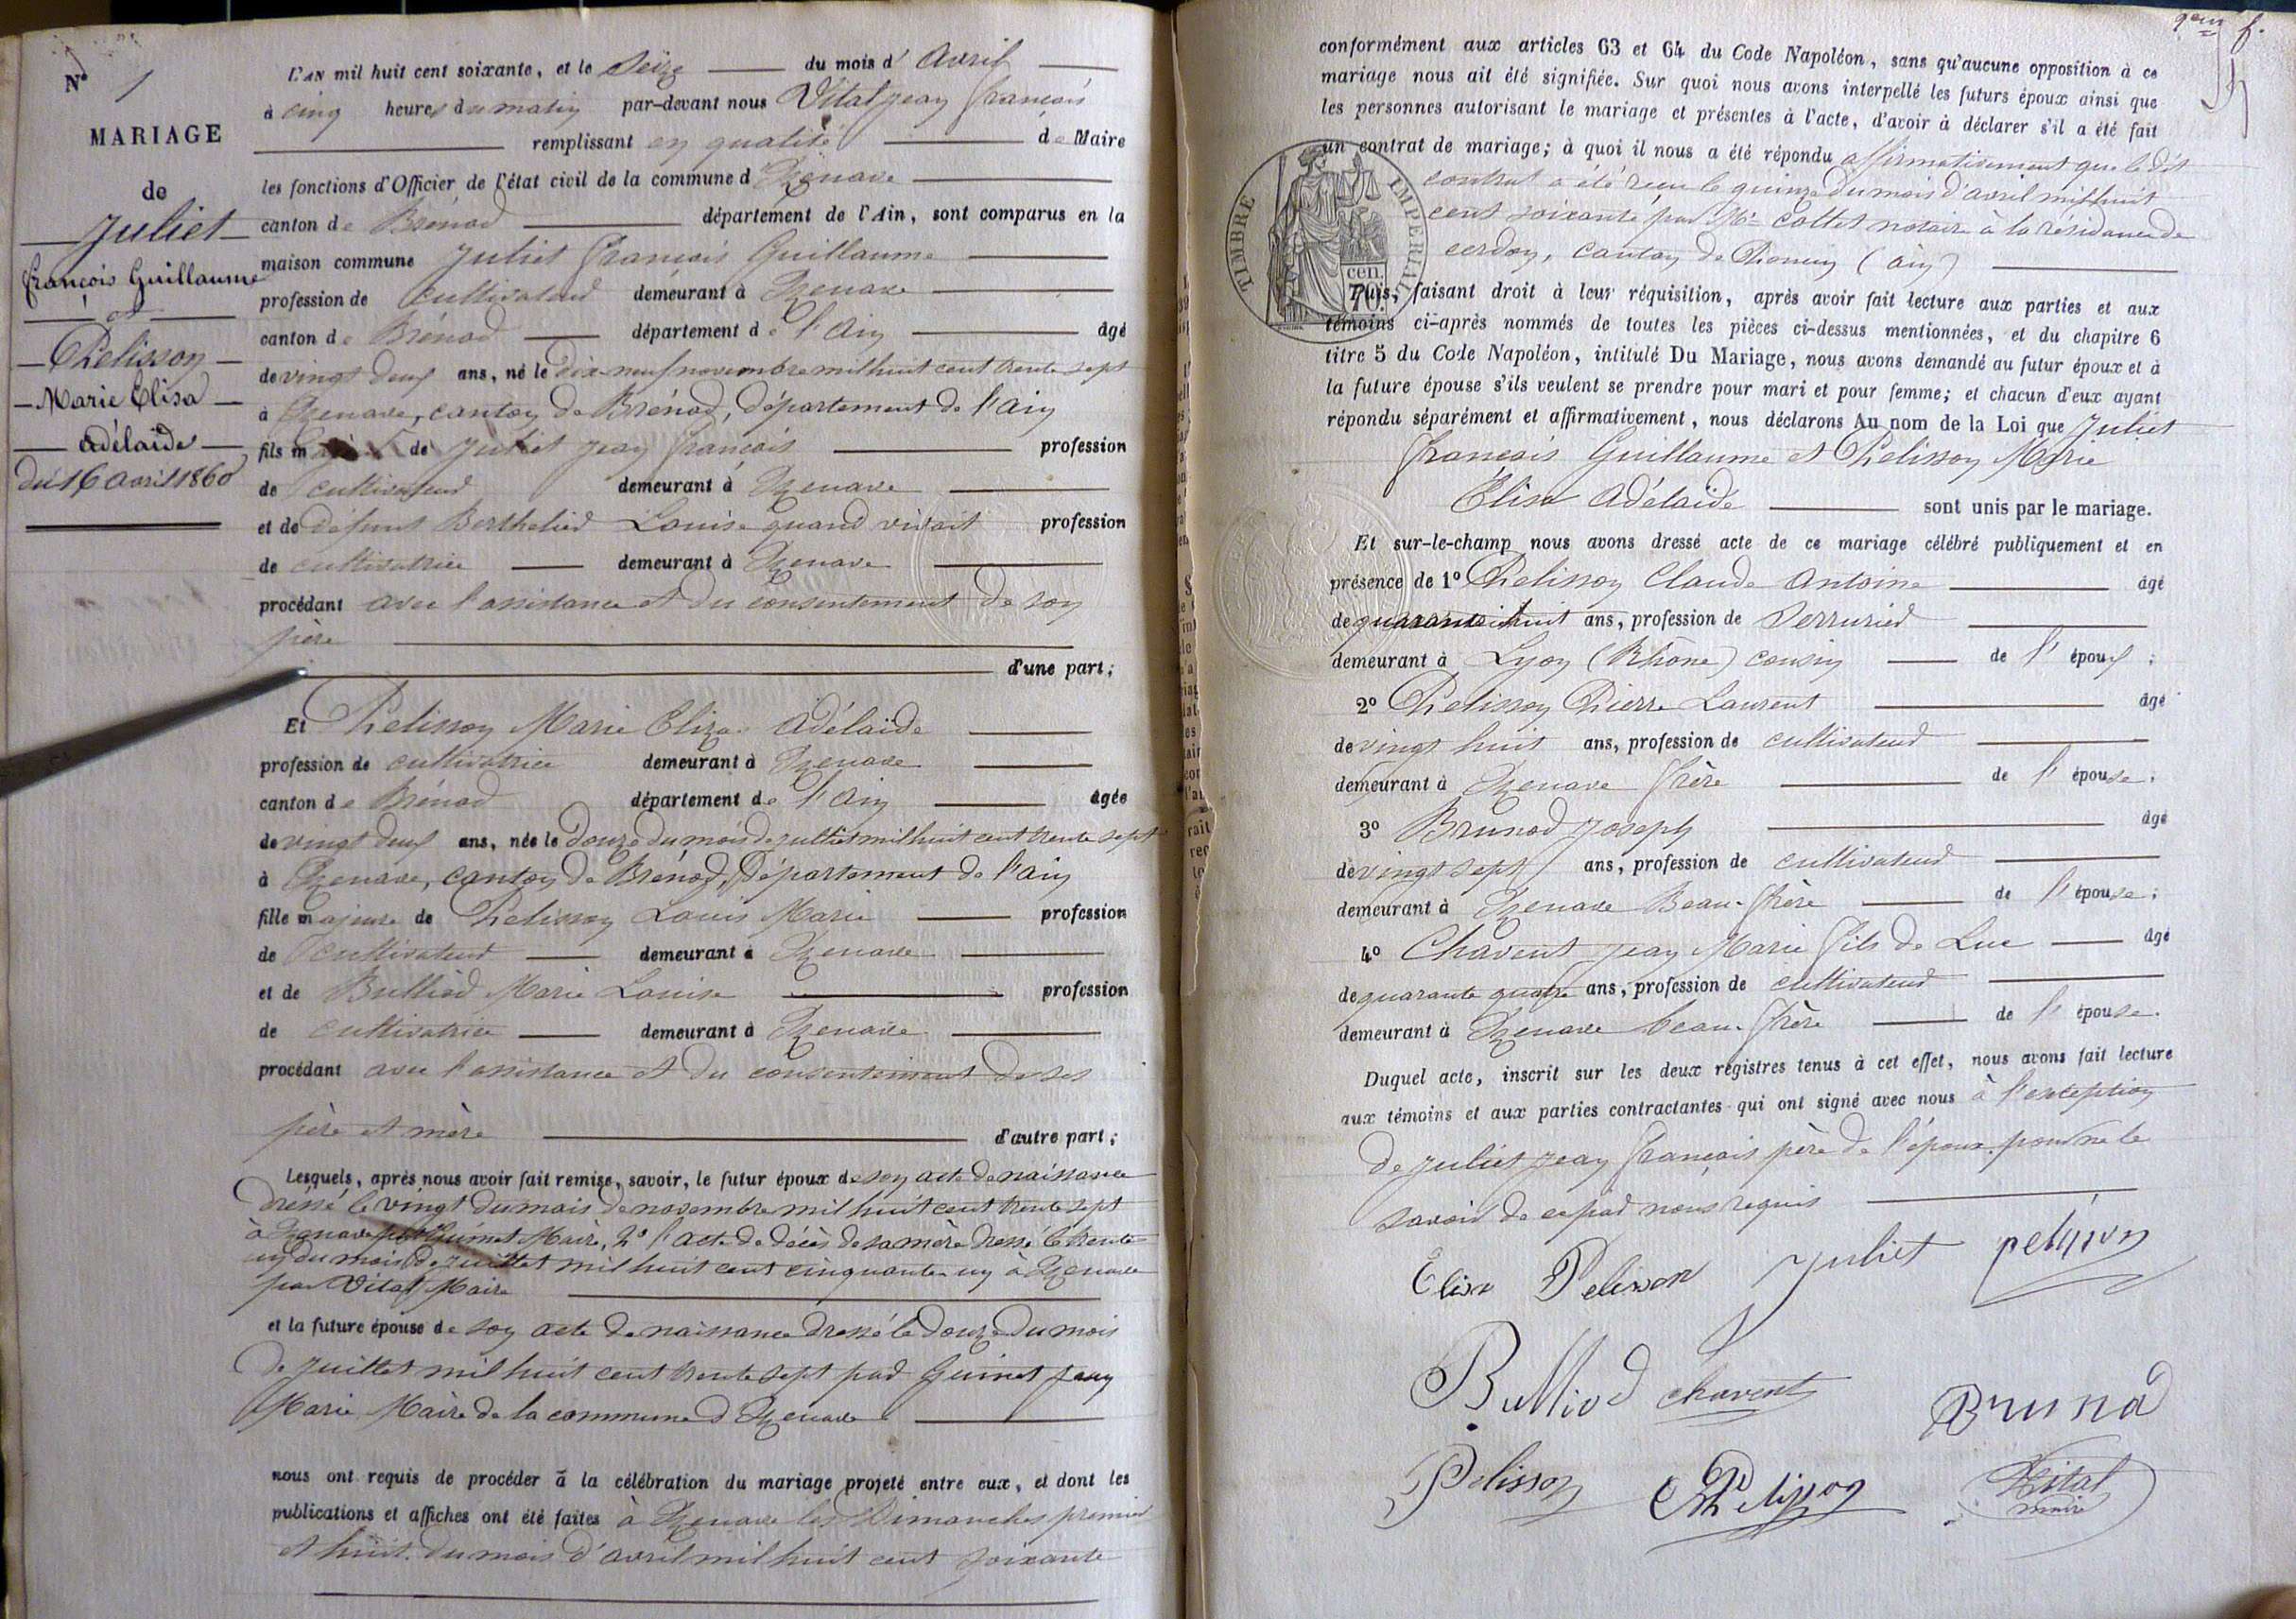 N° 1
MARIAGE
de
Juliet
françois Guillaume
et
Pelisson
Marie Elisa
adélaïde
du 16 avril 1860
L'AN mil huit cent soixante, et le Seize du mois d' avril
à cinq heures du matin par-devant nous Vital jean françois
remplissant en qualité de Maire
les fonctions d'Officier de l'état civil de la commune d'Izenave
canton de Brénod département de l'Ain, sont comparus en la
maison commune Juliet françois Guillaume
profession de cultivateur demeurant à Izenave
canton de Brénod département de l'Ain âgé
de vingt deux ans, né le dix-neuf novembre mil huit cent trente sept
à Izenave, canton de Brénod, département de l'ain
fils m de Juliet jean françois profession
de cultivateur demeurant à Izenave
et de défunt Berthelier Louise quand vivait profession
de cultivatrice demeurant à Izenave
procédant avec l'assistance et du consentement de son
père
d'une part;
Et Pelisson Marie Eliza adélaïde
profession de cultivatrice demeurant à Izenave
canton de Brénod département de l'Ain âgée
de vingt deux ans, née le douze du mois de juillet mil huit cent trente sept
à Izenave, canton de Brénod, Département de l'ain
fille majeure de Pelisson Louis Marie profession
de cultivateur demeurant à Izenave
et de Bulliod Marie Louise profession
de cultivatrice demeurant à Izenave
procédant avec l'assistance et du consentement de ses
père et mère d'autre part;
Lesquels, après nous avoir fait remise, savoir, le futur époux de son acte de naissance
dressé le vingt du mois de novembre mil huit cent trente sept
à Izenave par Guinet Maire, 2° l'acte de décès de sa mère dressé le trente
un du mois de juillet mil huit cent cinquante un à Izenave
par Vital Maire
et la future épouse de son acte de naissance dressé le douze du mois
de juillet mil huit cent trente sept par Guinet jean
Marie Maire de la commune d'Izenave
nous ont requis de procéder à la célébration du mariage projeté entre eux, et dont les
publications et affiches ont été faites à Izenave les Dimanches premier
et huit du mois d'avril mil huit cent soixante
conformément aux articles 63 et 64 du Code Napoléon, sans qu'aucune opposition à ce
mariage nous ait été signifiée. Sur quoi nous avons interpellé les futurs époux ainsi que
les personnes autorisant le mariage et présentes à l'acte, d'avoir à déclarer s'il a été fait
un contrat de mariage; à quoi il nous a été répondu affirmativement que le dit
contrat a été reçu le quinze du mois d'avril mil huit
cent soixante par Me Collet notaire à la résidance de
cerdon, canton de Poncin (ain)
TIMBRE IMPERIAL
cen.
Puis, faisant droit à leur réquisition, après avoir fait lecture aux parties et aux
témoins ci-après nommés de toutes les pièces ci-dessus mentionnées, et du chapitre 6
titre 5 du Code Napoléon, intitulé Du Mariage, nous avons demandé au futur époux et à
la future épouse s'ils veulent se prendre pour mari et pour femme; et chacun d'eux ayant
répondu séparément et affirmativement, nous déclarons Au nom de la Loi que Juliet
françois Guillaume et Pelisson Marie
Elisa adélaïde sont unis par le mariage.
Et sur-le-champ nous avons dressé acte de ce mariage célébré publiquement et en
présence de 1° Pelisson Claude antoine âgé
de quarante huit ans, profession de Serrurier
demeurant à Lyon (Rhône) cousin de l'époux;
2° Pelisson Pierre Laurent âgé
de vingt huit ans, profession de cultivateur
demeurant à Izenave frère de l'épouse;
3° Brunod joseph âgé
de vingt sept ans, profession de cultivateur
demeurant à Izenave Beau-frère de l'épouse;
4° Chavent jean Marie fils de Luc âgé
de quarante quatre ans, profession de cultivateur
demeurant à Izenave beau-frère de l'épouse.
Duquel acte, inscrit sur les deux registres tenus à cet effet, nous avons fait lecture
aux témoins et aux parties contractantes qui ont signé avec nous à l'exception
de juliet jean françois père de l'époux pour ne le
savoir de ce par nous requis
Elisa Pelisson Juliet pelisson
Bulliod chavent Brunod
Pelisson Pelisson Vital
maire